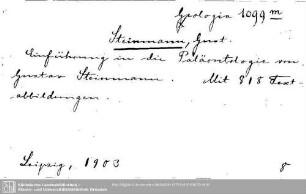 Geologia 1099 m
Steinmann, Gust.
Einführung in die Paläontologie von
Gustav Steinmann. Mit 818 Text-
abbildungen.
Leipzig, 1903 8
Sächsische Landesbibliothek -
Staats- und Universitätsbibliothek Dresden